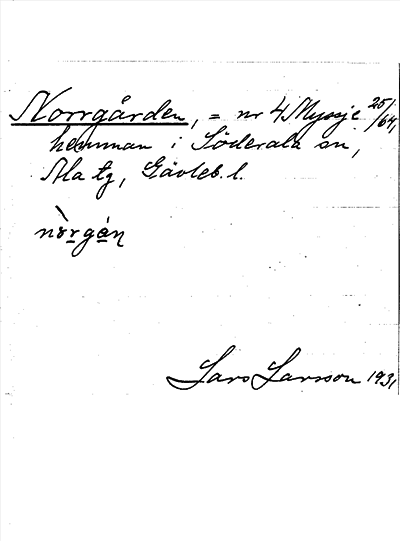 Norrgården, = nr 4 Myssje 25/64,
hemman i Söderala sn,
Ala tg, Gävleb. l.
nòrgáṇ
Lars Larsson 1931